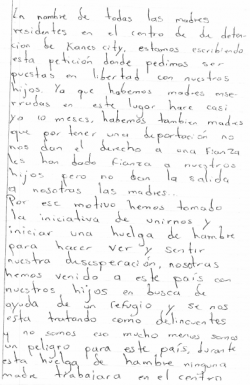 En nombre de todas las madres
residentes en el centro de de deten-
cion de Kanes city, estamos escribiendo
esta petición donde pedimos ser
puestas en libertad con nuestros
hijos. Ya que habemos madres ense-
rradas en este lugar hace casi
ya 10 meses, habemos tambien madres
que por tener una deportación no
nos dan el derecho a una fianza
les han dado Fianza a nuestros
hijos pero no dan la salida
a nosotras las madres..
Por ese motivo hemos tomado
la iniciativa de unirnos y
iniciar una huelga de hambre
para hacer ver y sentir
nuestra desesperación, nosotras
hemos venido a este país con
nuestros hijos en busca de
ayuda de un refugio y se nos
esta tratando como delincuentes
y no somos eso mucho menos somos
un peligro para este país, durante
esta huelga de hambre ninguna
madre trabajara en el centro